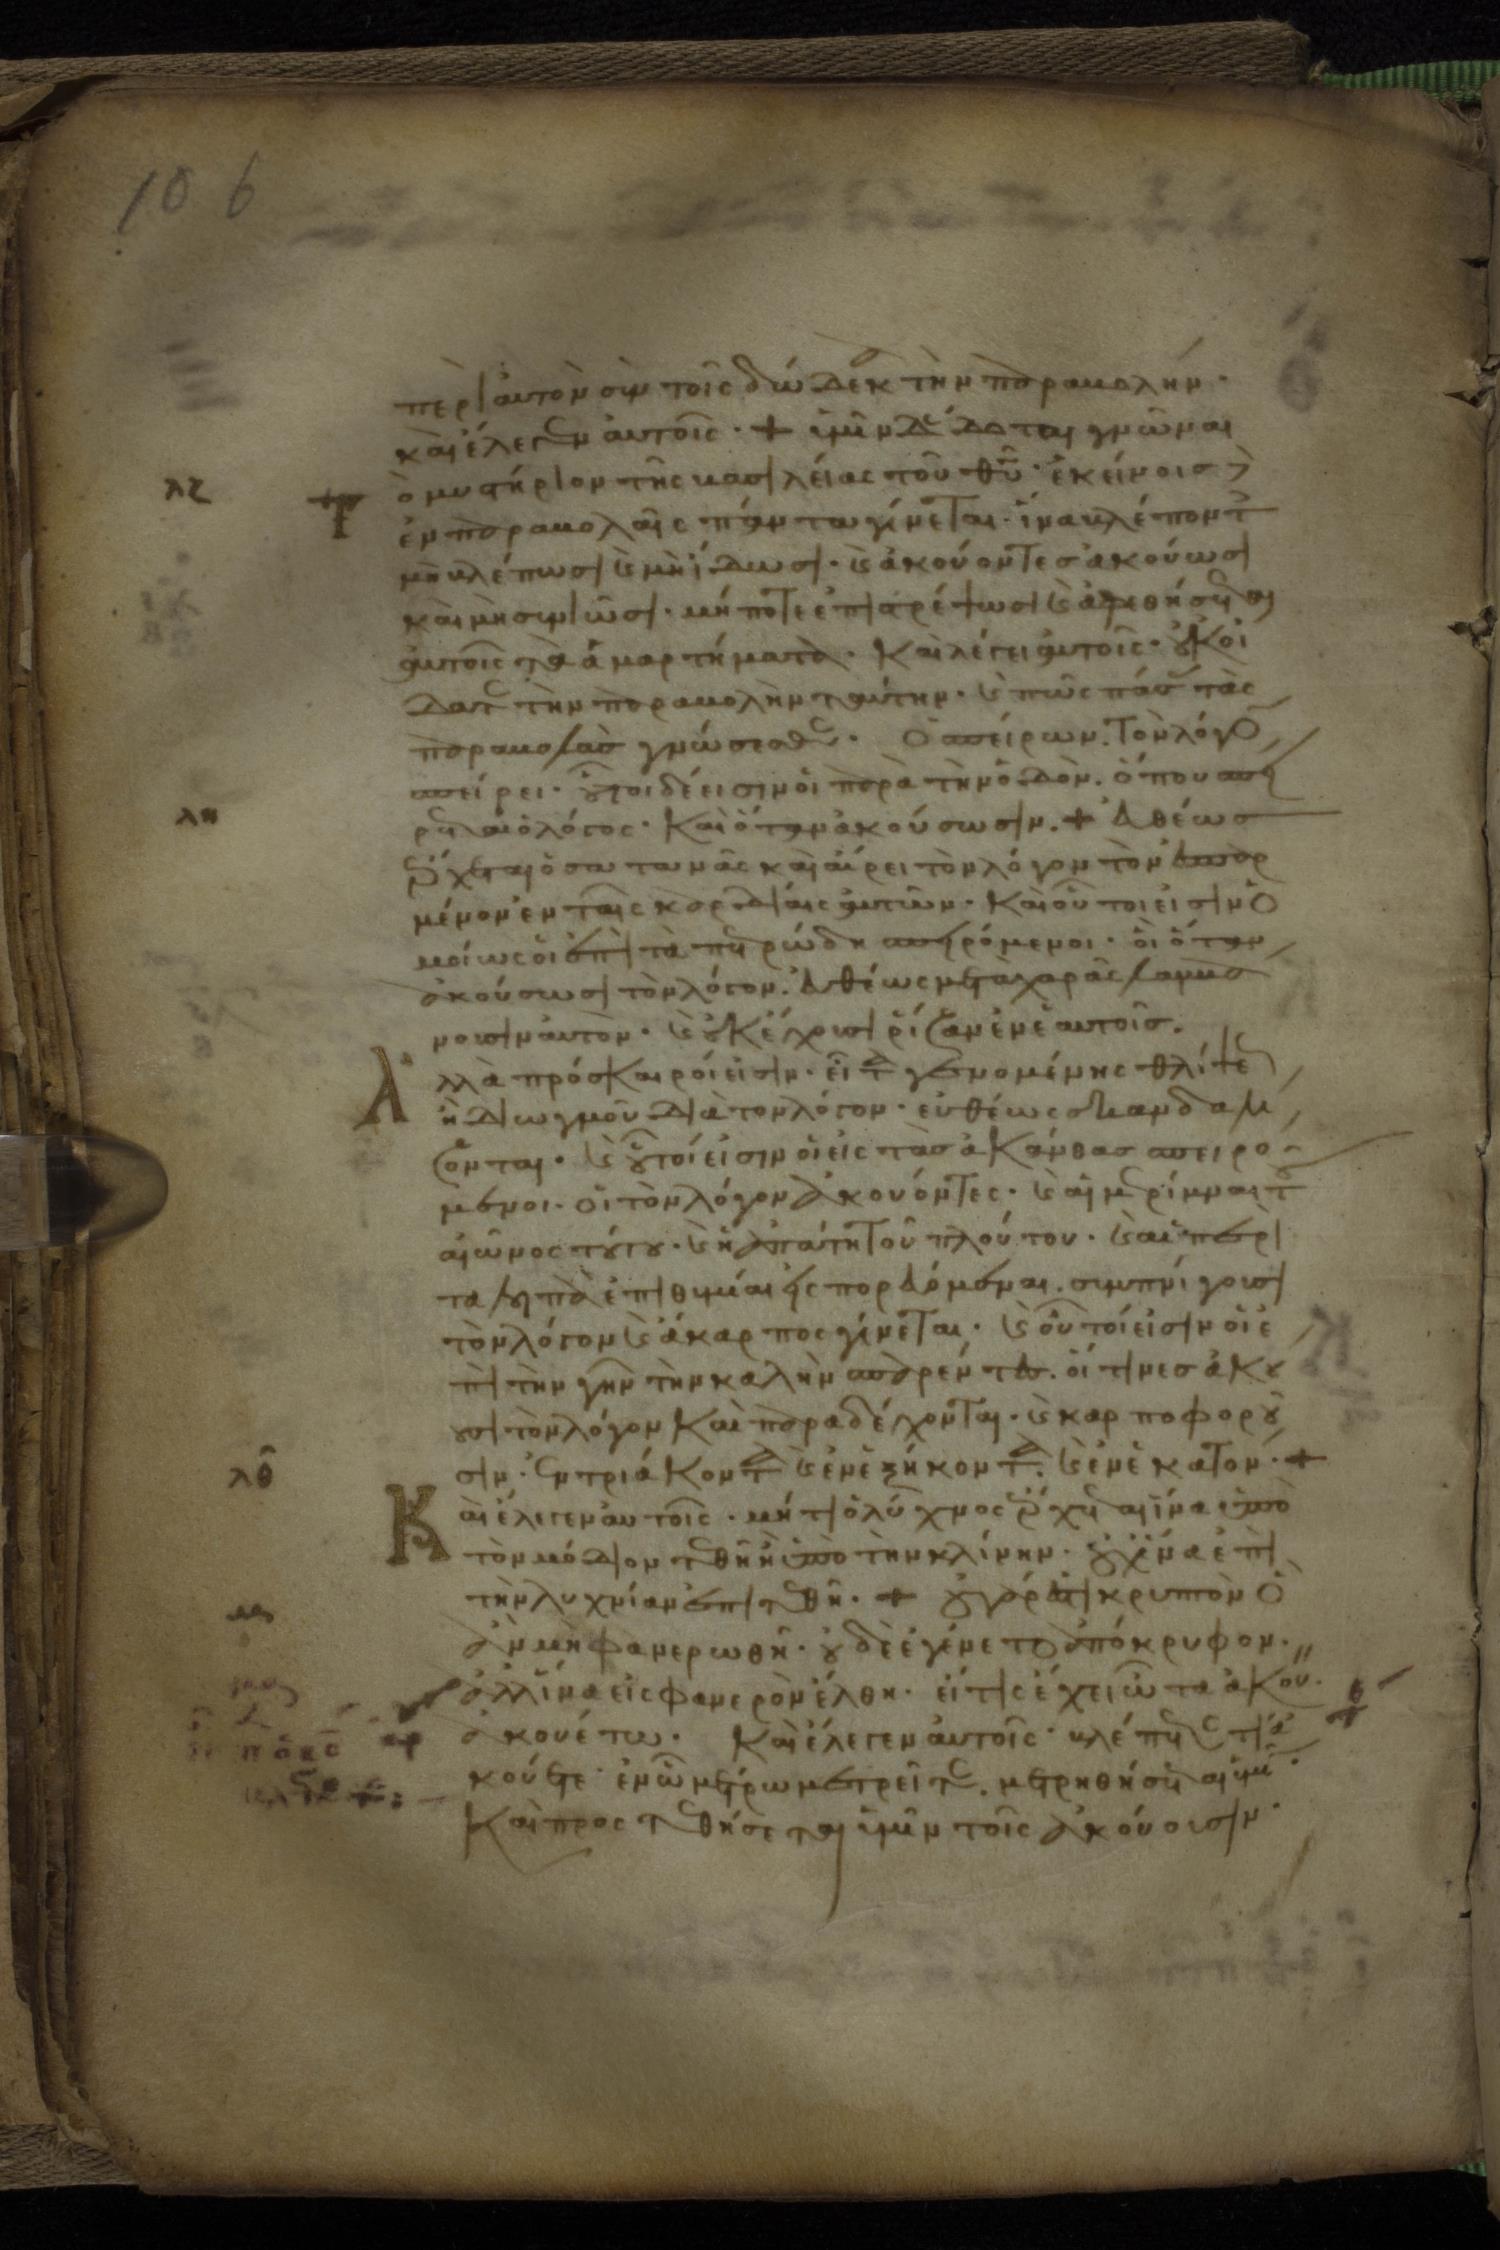 106
περὶ αὐτὸν σὺν τοῖς δώδεκ τὴν παραβολήν·
καὶ ἔλεγεν αὐτοῖς· + ὑμῖν δέδοται γνῶναι
λζ
τὸ μυστήριον τῆς βασιλείας τοῦ θῦ· ἐκείνοις
ἐν παραβολαῖς πάντα γίνεται· ἵνα βλέποντ
μὴ βλέπωσι καὶ μὴ ἴδωσι· καὶ ἀκούοντες ἀκούωσι
καὶ μὴ συνιῶσι· μήποτε ἐπιστρέψωσι καὶ ἀφεθήσεται
αὐτοῖς τὰ ἁμαρτήματα· Καὶ λέγει αὐτοῖς· οὐκ οἴ
δατε τὴν παραβολὴν ταύτην· καὶ πῶς πάσ τὰς
παραβολὰς γνώσεσθε· Ὁ σπείρων· τὸν λόγο
σπείρει· οὗτοι δέ εἰσιν οἱ παρὰ τὴν ὁδὸν· ὅπου σπεί
λη
ρεται ὁ λόγος· Καὶ ὅταν ἀκούσωσιν· + εὐθέως
ἔρχεται ὁ σατανᾶς καὶ αἴρει τὸν λόγον τὸν ἐσπαρ
μένον ἐν ταῖς καρδίαις αὐτῶν· Καὶ οὗτοι εἰσὶν ὁ
μοίως οἱ ἐπὶ τὰ πετρώδη σπειρόμενοι· οἳ ὅταν
ἀκούσωσι τὸν λόγον· εὐθέως μετὰ χαρᾶς λαμβά
νουσιν αὐτὸν· καὶ οὐκ ἔχουσι ῥίζαν ἐν ἑαυτοῖς.
Ἀλλὰ πρόσκαιροί εἰσιν· εἶτα γενομένης θλίψε
ἢ διωγμοῦ διὰ τὸν λόγον· εὐθέως σκανδαλί
ζονται· καὶ οὗτοί εἰσιν οἱ εἰς τὰς ἀκάνθας σπειρό
μενοι· οἱ τὸν λόγον ἀκούοντες· καὶ αἱ μέριμναι τοῦ
αἰῶνος τούτου· καὶ ἡ ἀπάτη τοῦ πλούτου· καὶ αἱ περὶ
τὰ λοιπὰ ἐπιθυμίαι εἰσπορευόμεναι· συμπνίγουσι
τὸν λόγον καὶ ἄκαρπος γίνεται· καὶ οὗτοί εἰσιν οἱ ἐ
πὶ τὴν γῆν τὴν καλὴν σπαρέντες· οἵτινες ἀκού
ουσι τὸν λόγον Καὶ παραδέχονται· καὶ καρποφοροῦ
σιν· ἓν τριάκοντα καὶ ἓν ἑξήκοντα· καὶ ἓν ἑκατόν· +
λθ
Καὶ ἔλεγεν αὐτοῖς· μήτι ὁ λύχνος ἔρχεται ἵνα ὑπὸ
τὸν μόδιον τεθῇ ἢ ὑπὸ τὴν κλίνην· οὐχ ἵνα ἐπὶ
τὴν λυχνίαν ἐπιτεθῇ· + οὐ γάρ ἐστι κρυπτὸν ὃ
ἐὰν μὴ φανερωθῇ· οὐδὲ ἐγένετο ἀπόκρυφον·
ἀλλ' ἵνα εἰς φανερὸν ἔλθῃ· εἴ τις ἔχει ὦτα ἀκού·
ἀκουέτω· Καὶ ἔλεγεν αὐτοῖς· βλέπετε τί ἀ
κούετε· ἐν ᾧ μέτρῳ μετρεῖτε· μετρηθήσεται ὑμῖ·
Καὶ προστεθήσεται ὑμῖν τοῖς ἀκούουσιν·